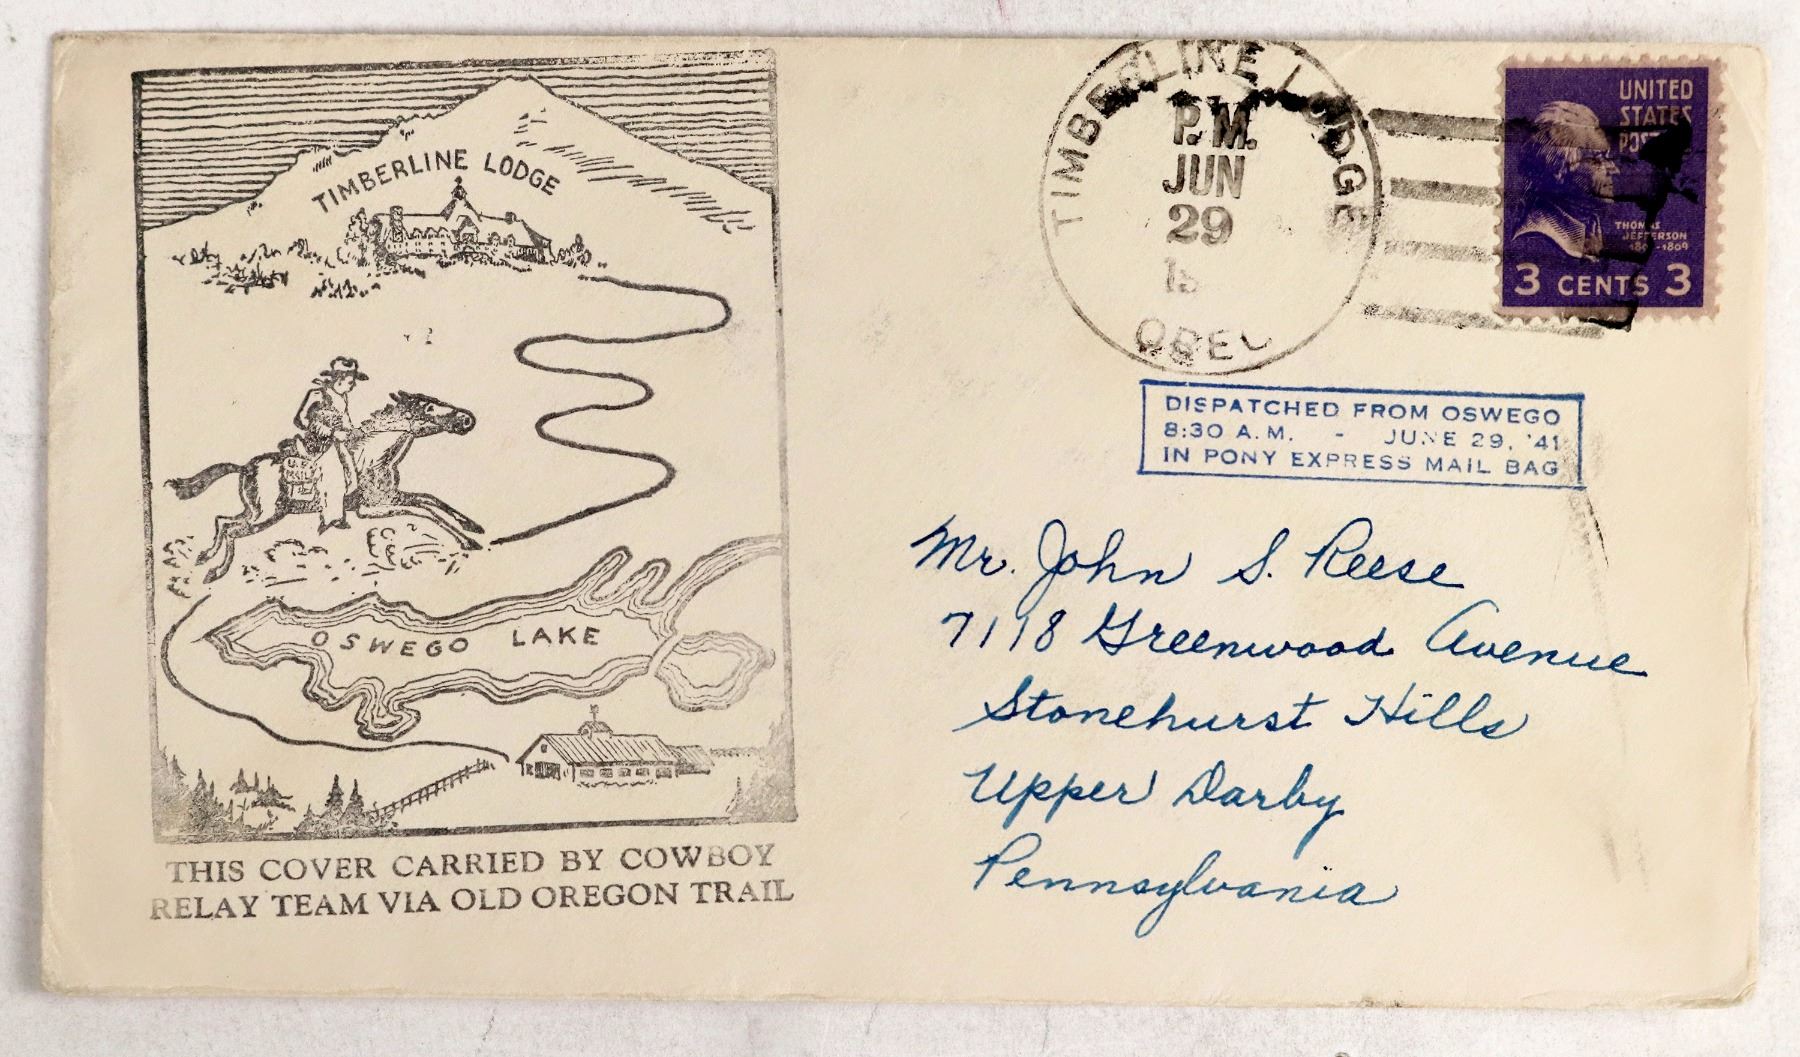 TIMBERLINE LODGE
U.S.
MAIL
OSWEGO LAKE
THIS COVER CARRIED BY COWBOY
RELAY TEAM VIA OLD OREGON TRAIL
TIMBERLINE LODGE
P.M.
JUN
29
OREG
UNITED
STATES
THOMAS
JEFFERSON
3 CENTS 3
DISPATCHED FROM OSWEGO
8:30 A.M. - JUNE 29, '41
IN PONY EXPRESS MAIL BAG
Mr. John S. Reese
7118 Greenwood Avenue
Stonehurst Hills
Upper Darby
Pennsylvania